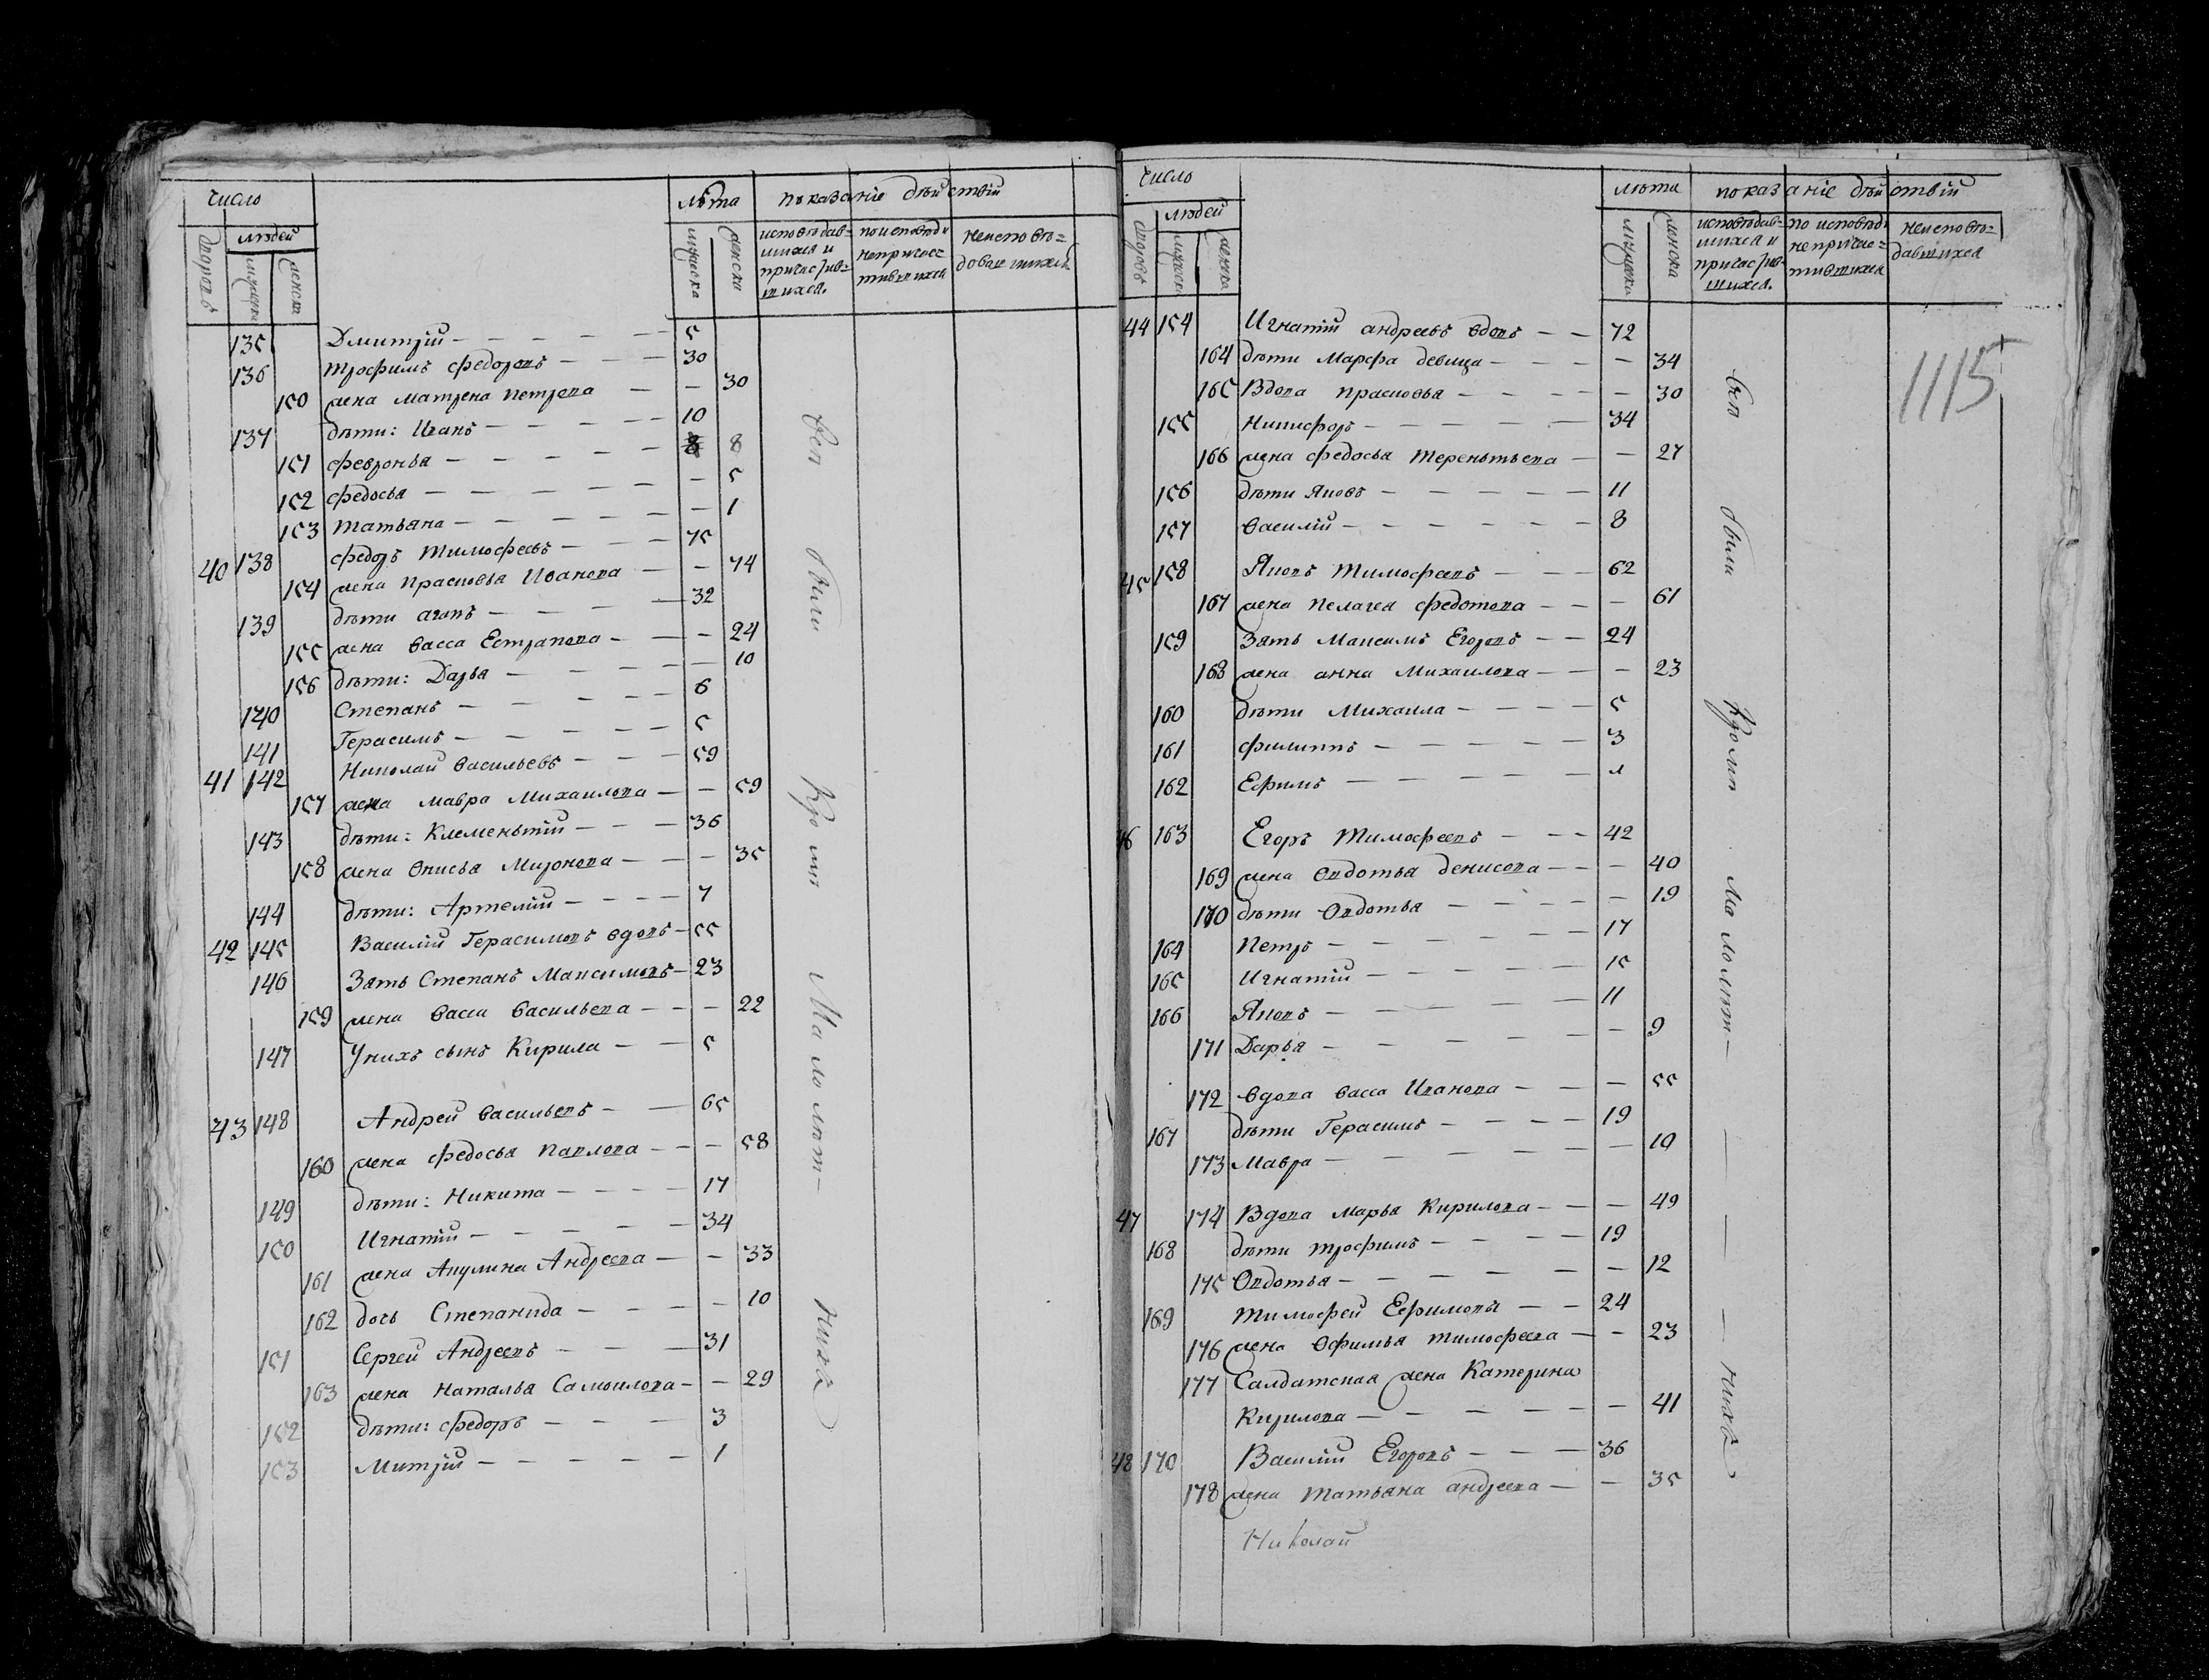 число
лѣта показаніе дѣйствій
дворовъ людей мужеска женска
мужеска женска исповѣдав=шихся и причастив=шихся. по исповѣди непричас=тившихся неисповѣ=довавшихся
135 Дмитрій — — — — — 5
136 Трофимъ Федоровъ — — — 30
150 жена Матрена Петрова — — 30
137 дѣти: Иванъ — — — — — 10
151 Февронья — — — — — 8 8
152 Федосья — — — — — — 5
153 Татьяна — — — — — — 1
40 138 Федоръ Тимофеевъ — — — 75
154 жена Прасковья Иванова — — 74
139 дѣти Агапъ — — — — 32
155 жена Васса Естратова — — — 24
156 дѣти: Дарья — — — — — 10
140 Степанъ — — — — — 6
141 Герасимъ — — — — — 5
41 142 Николай Васильевъ — — — 59
157 жена Мавра Михаилова — — 59
143 дѣти: Клеменьтій — — — 36
158 жена Онисья Миронова — — — 35
144 дѣти: Артемій — — — — 7
42 145 Василій Герасимовъ вдовъ — 55
146 Зять Степанъ Максимовъ — 23
159 жена Васса Васильева — — — 22
147 Унихъ сынъ Кирила — — 5
43 148 Андрей Васильевъ — — 65
160 жена Федосья Павлова — — — 58
149 дѣти: Никита — — — — 17
150 Игнатій — — — — — 34
161 жена Акулина Андреева — — 33
162 дочь Степанида — — — — 10
151 Сергей Андреевъ — — — 31
163 жена Наталья Самоилова — — 29
152 дѣти: Федоръ — — — 3
153 Митрій — — — — — 1
всѣ были кромѣ малолѣт— нихъ
число
лѣта показаніе дѣйствій
дворовъ людей мужеска женска
мужеска женска исповѣдав=шихся и причастив=шихся. по исповѣди непричас=тившихся неисповѣ=давшихся
1115
44 154 Игнатій Андреевъ вдовъ — — 72
164 дѣти Марфа девица — — — — 34
165 Вдова Прасковья — — — — — 30
155 Никифоръ — — — — — 34
166 жена Федосья Тереньтьева — — 27
156 дѣти Яковъ — — — — — 11
157 Василій — — — — — — 8
45 158 Яковъ Тимофеевъ — — — 62
167 жена Пелагея Федотова — — — 61
159 Зять Максимъ Егоровъ — — 24
168 жена Анна Михаилова — — — 23
160 дѣти Михаила — — — — 5
161 Филиппъ — — — — — 3
162 Ефимъ — — — — — 1
46 163 Егоръ Тимофеевъ — — — 42
169 жена Овдотья Денисова — — — 40
170 дѣти Овдотья — — — — — 19
164 Петръ — — — — — — 17
165 Игнатій — — — — — 15
166 Яковъ — — — — — 11
171 Дарья — — — — — — 9
172 Вдова Васса Иванова — — — 55
167 дѣти Герасимъ — — — — 19
173 Мавра — — — — — — 10
47 174 Вдова Марья Кирилова — — — 49
168 дѣти Трофимъ — — — — 19
175 Овдотья — — — — — — 12
169 Тимофей Ефимовъ — — 24
176 жена Офимья Тимофеева — — 23
177 Салдатская жена Катерина
Кирилова — — — — — — 41
48 170 Василій Егоровъ — — — 36
178 жена Татьяна Андреева — — 35
Николай
всѣ были кромѣ малолѣт— — — — нихъ